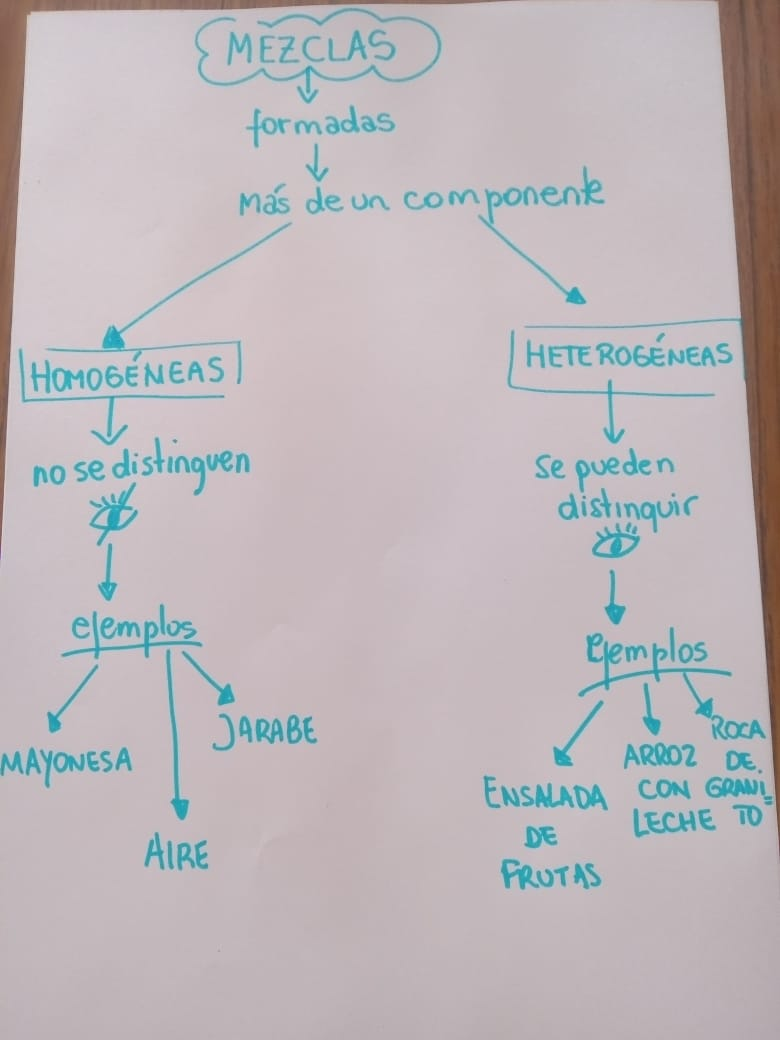 MEZCLAS
formadas
más de un componente
HOMOGÉNEAS
no se distinguen
ejemplos
MAYONESA
JARABE
AIRE
HETEROGÉNEAS
se pueden
distinguir
Ejemplos
ENSALADA
DE
FRUTAS
ARROZ
CON
LECHE
ROCA
DE
GRANI
TO